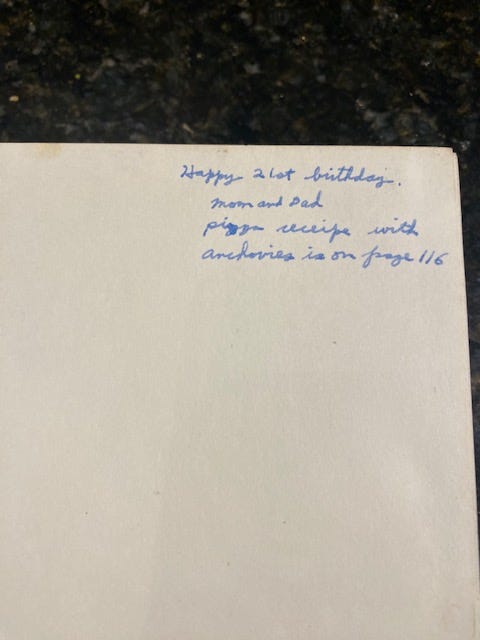 Happy 21st birthday.
Mom and Dad
pizza receipe with
anchovies is on page 116